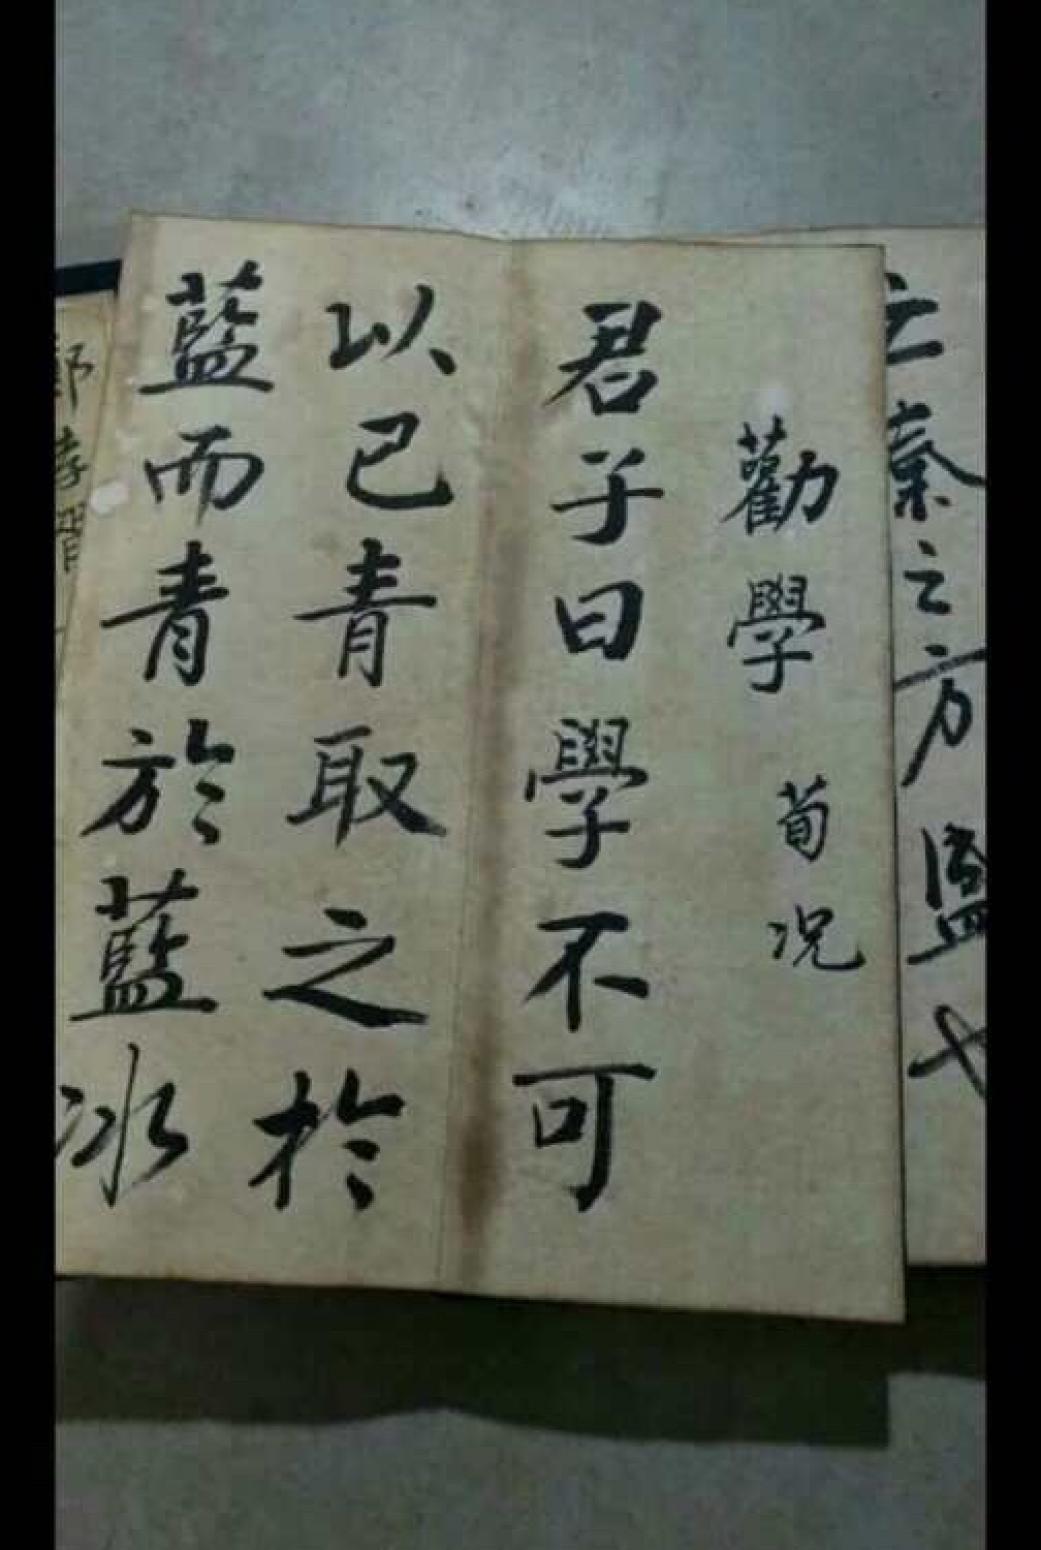 之秦之方盬也
勸學 荀况
君子曰學不可
以已青取之於
藍而青於藍冰
鄭孝胥